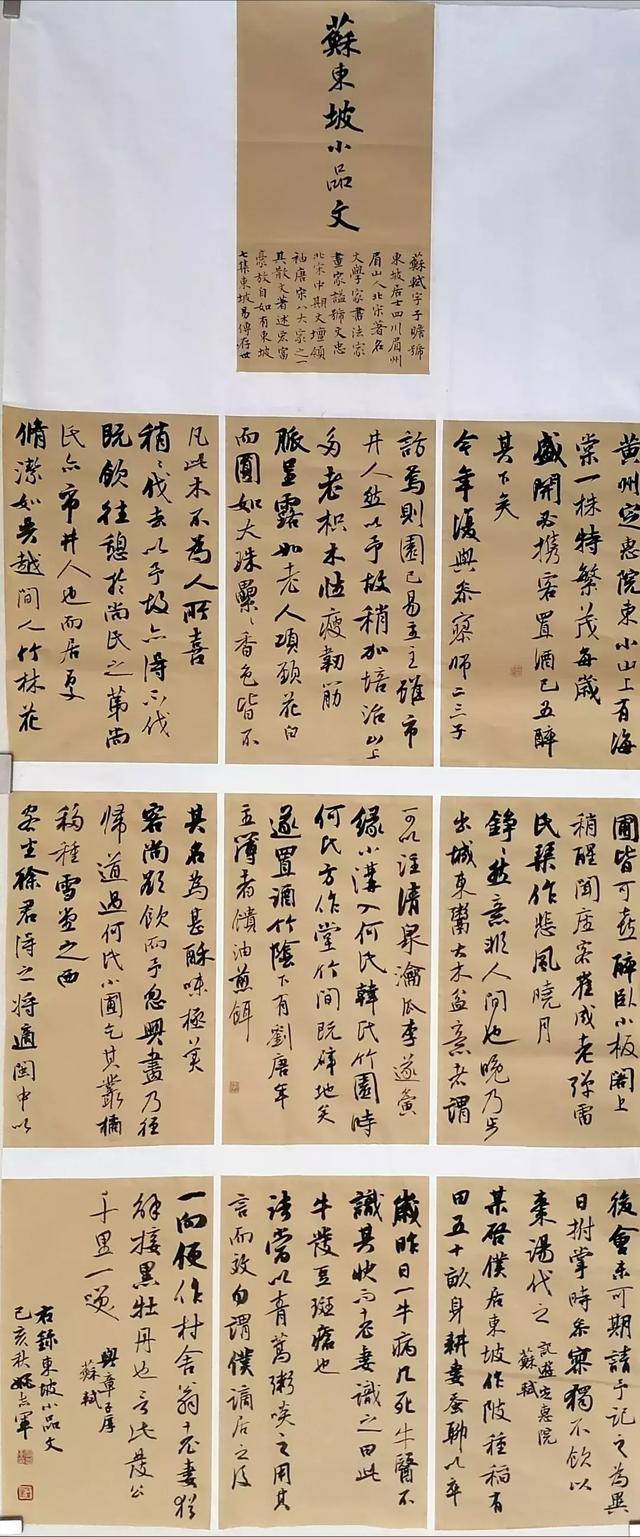 蘇東坡小品文
蘇軾字子瞻號
東坡居士四川眉州
眉山人北宋著名
文學家書法家
畫家謚號文忠
北宋中期文壇領
袖唐宋八大家之一
其散文著述宏富
豪放自如有東坡
七集東坡易傳存世
黄州定惠院東小山上有海
棠一株特繁茂每歲
盛開必攜客置酒已五醉
其下矣
今年復與參寥師二三子
訪焉則園已易主主雖市
井人然以予故稍加培治山上
多老枳木性瘦韌筋
脈呈露如老人項頸花白
而圓如大珠纍〻香色皆不
凡此木不為人所喜
稍〻伐去以予故亦得不伐
既飲往憩於尚氏之第尚
氏亦市井人也而居處
脩潔如吳越間人竹林花
圃皆可喜醉臥小板閣上
稍醒聞座客崔成老彈雷
氏琴作悲風曉月
錚〻然意非人間也晚乃步
出城東鬻大木盆意者謂
可以注清泉瀹瓜李遂夤
緣小溝入何氏韓氏竹園時
何氏方作堂竹間既辟地矣
遂置酒竹陰下有劉唐年
主簿者饋油煎餌
其名為甚酥味極美
客尚欲飲而予忽興盡乃徑
歸道過何氏小圃乞其叢橘
移種雪堂之西
坐客徐君得之將適閩中以
後會未可期請予記之為異
日拊掌時參寥獨不飲以
棗湯代之
記遊定惠院
蘇軾
某啟僕居東坡作陂種稻有
田五十畝身耕妻蠶聊以卒
歲昨日一牛病几死牛醫不
識其狀而老妻識之曰此
牛發豆斑瘡也
法當以青蒿粥啖之用其
言而效勿謂僕謫居之後
一向便作村舍翁老妻猶
解接黑牡丹也言此發公
千里一笑
與章子厚
蘇軾
右錄東坡小品文
己亥秋姚志軍